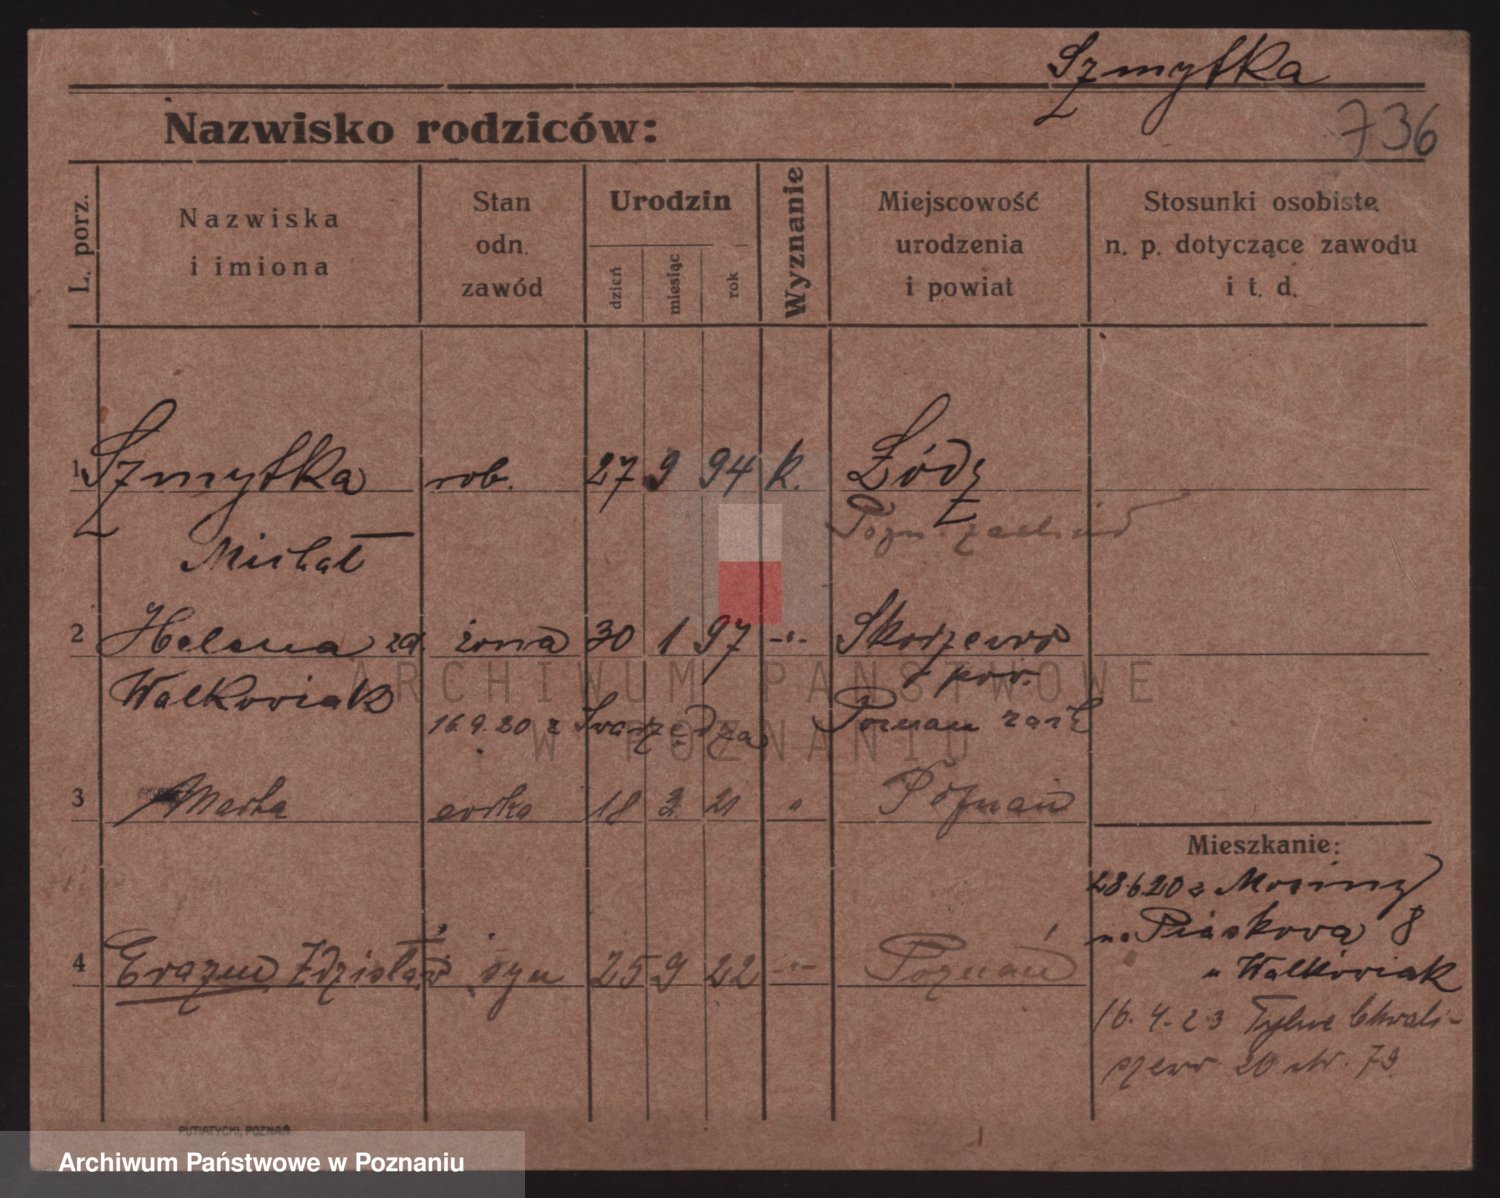 Szmytka
736
Nazwisko rodziców:
L. porz.
Nazwiska
i imiona
Stan
odn.
zawód
Urodzin
dzień
miesiąc
rok
Wyznanie
Miejscowość
urodzenia
i powiat
Stosunki osobiste
n. p. dotyczące zawodu
i t. d.
1 Szmytka rob. 27 9 94 k. Łódź
Michał Pozn. zachód
2 Helena zd. żona 30 1 97 -"- Skorzewo
Walkowiak pow.
16.9.20 z Swarzędza Poznań zach
3 Marta córka 18 3 21 " Poznań
Mieszkanie:
28.6.20 z Mosiny
na Piaskowa 8
u Walkowiak
4 Erazm Zdzisław syn 25 9 22 -"- Poznań
16.4.23 Tylne Chwali-
szewo 20 str. 79
PUTIATYCKI, POZNAŃ
ARCHIWUM PAŃSTWOWE
W POZNANIU
Archiwum Państwowe w Poznaniu